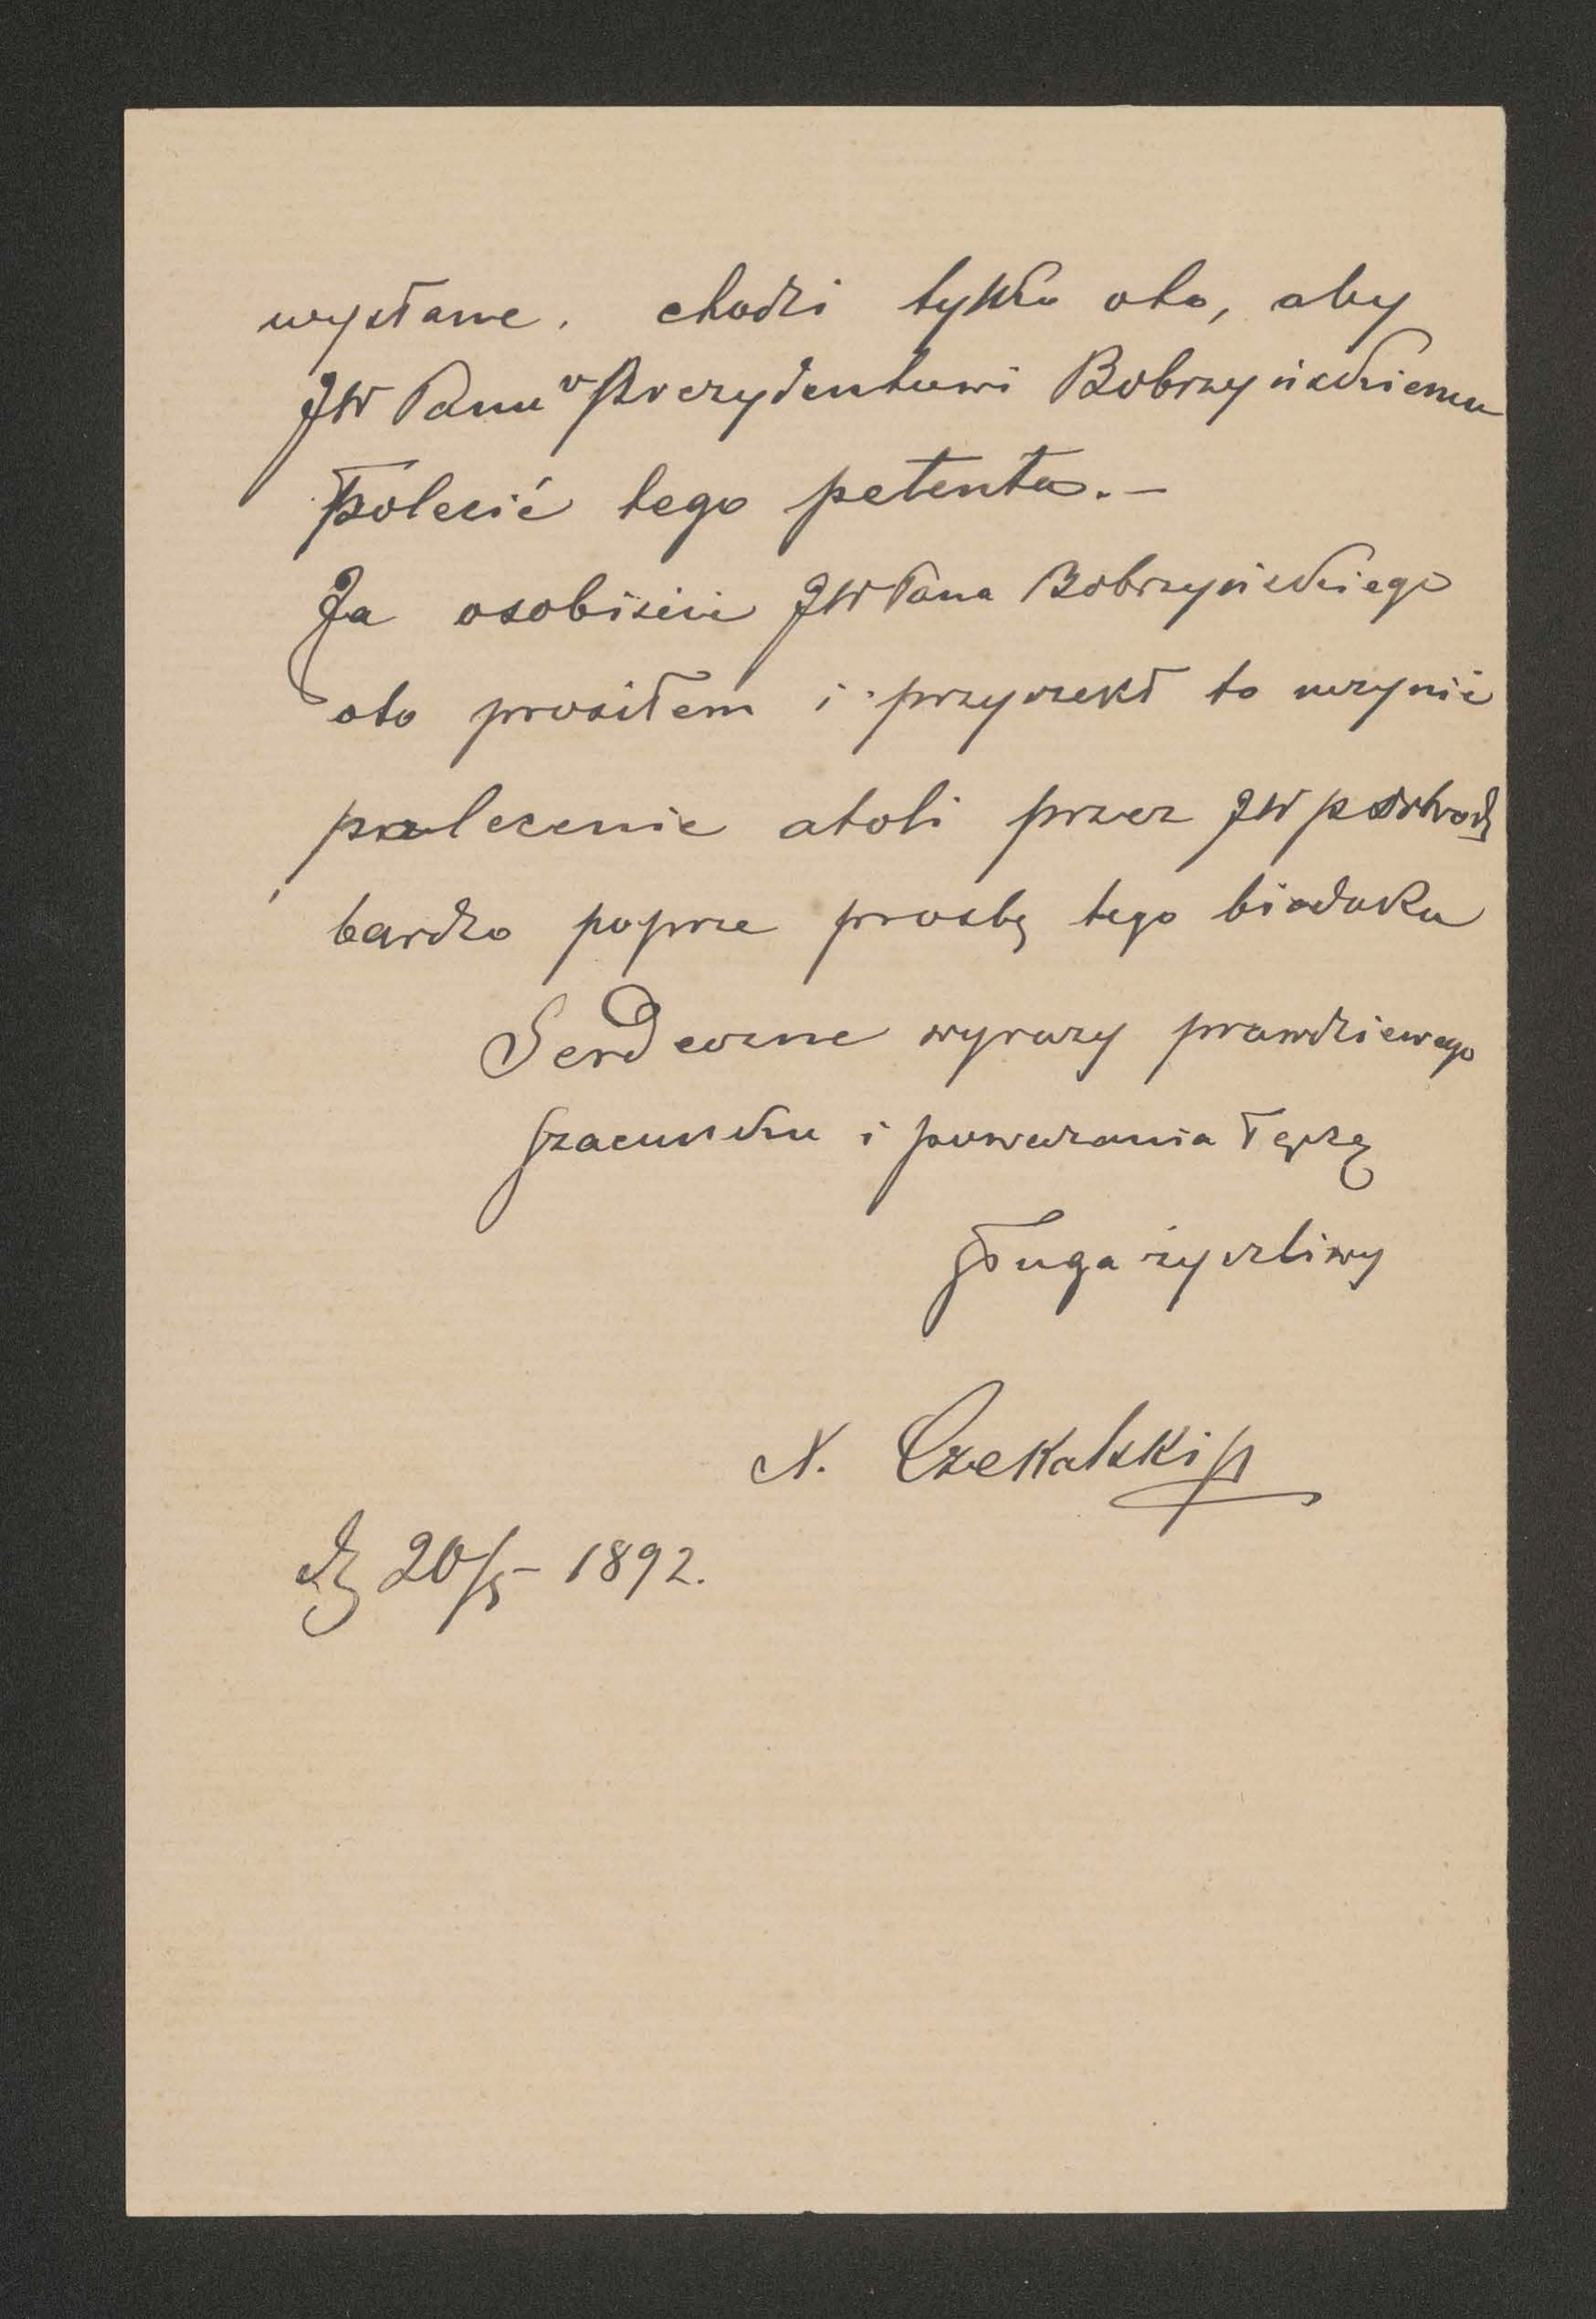 wysłane. chodzi tylko oto, aby
JW Panu v Prezydentowi Bobrzyńskiemu
polecić tego petenta. –
Ja osobiście JWPana Bobrzyńskiego
oto prosiłem i przyrzekł to uczynić
polecenie atoli przez JW
bardzo poprze prosbę tego biedaka
Serdeczne wyrazy prawdziewego
szacunku i poważania łączę
sługa życzliwy
Czekalski
20/5 – 1892.